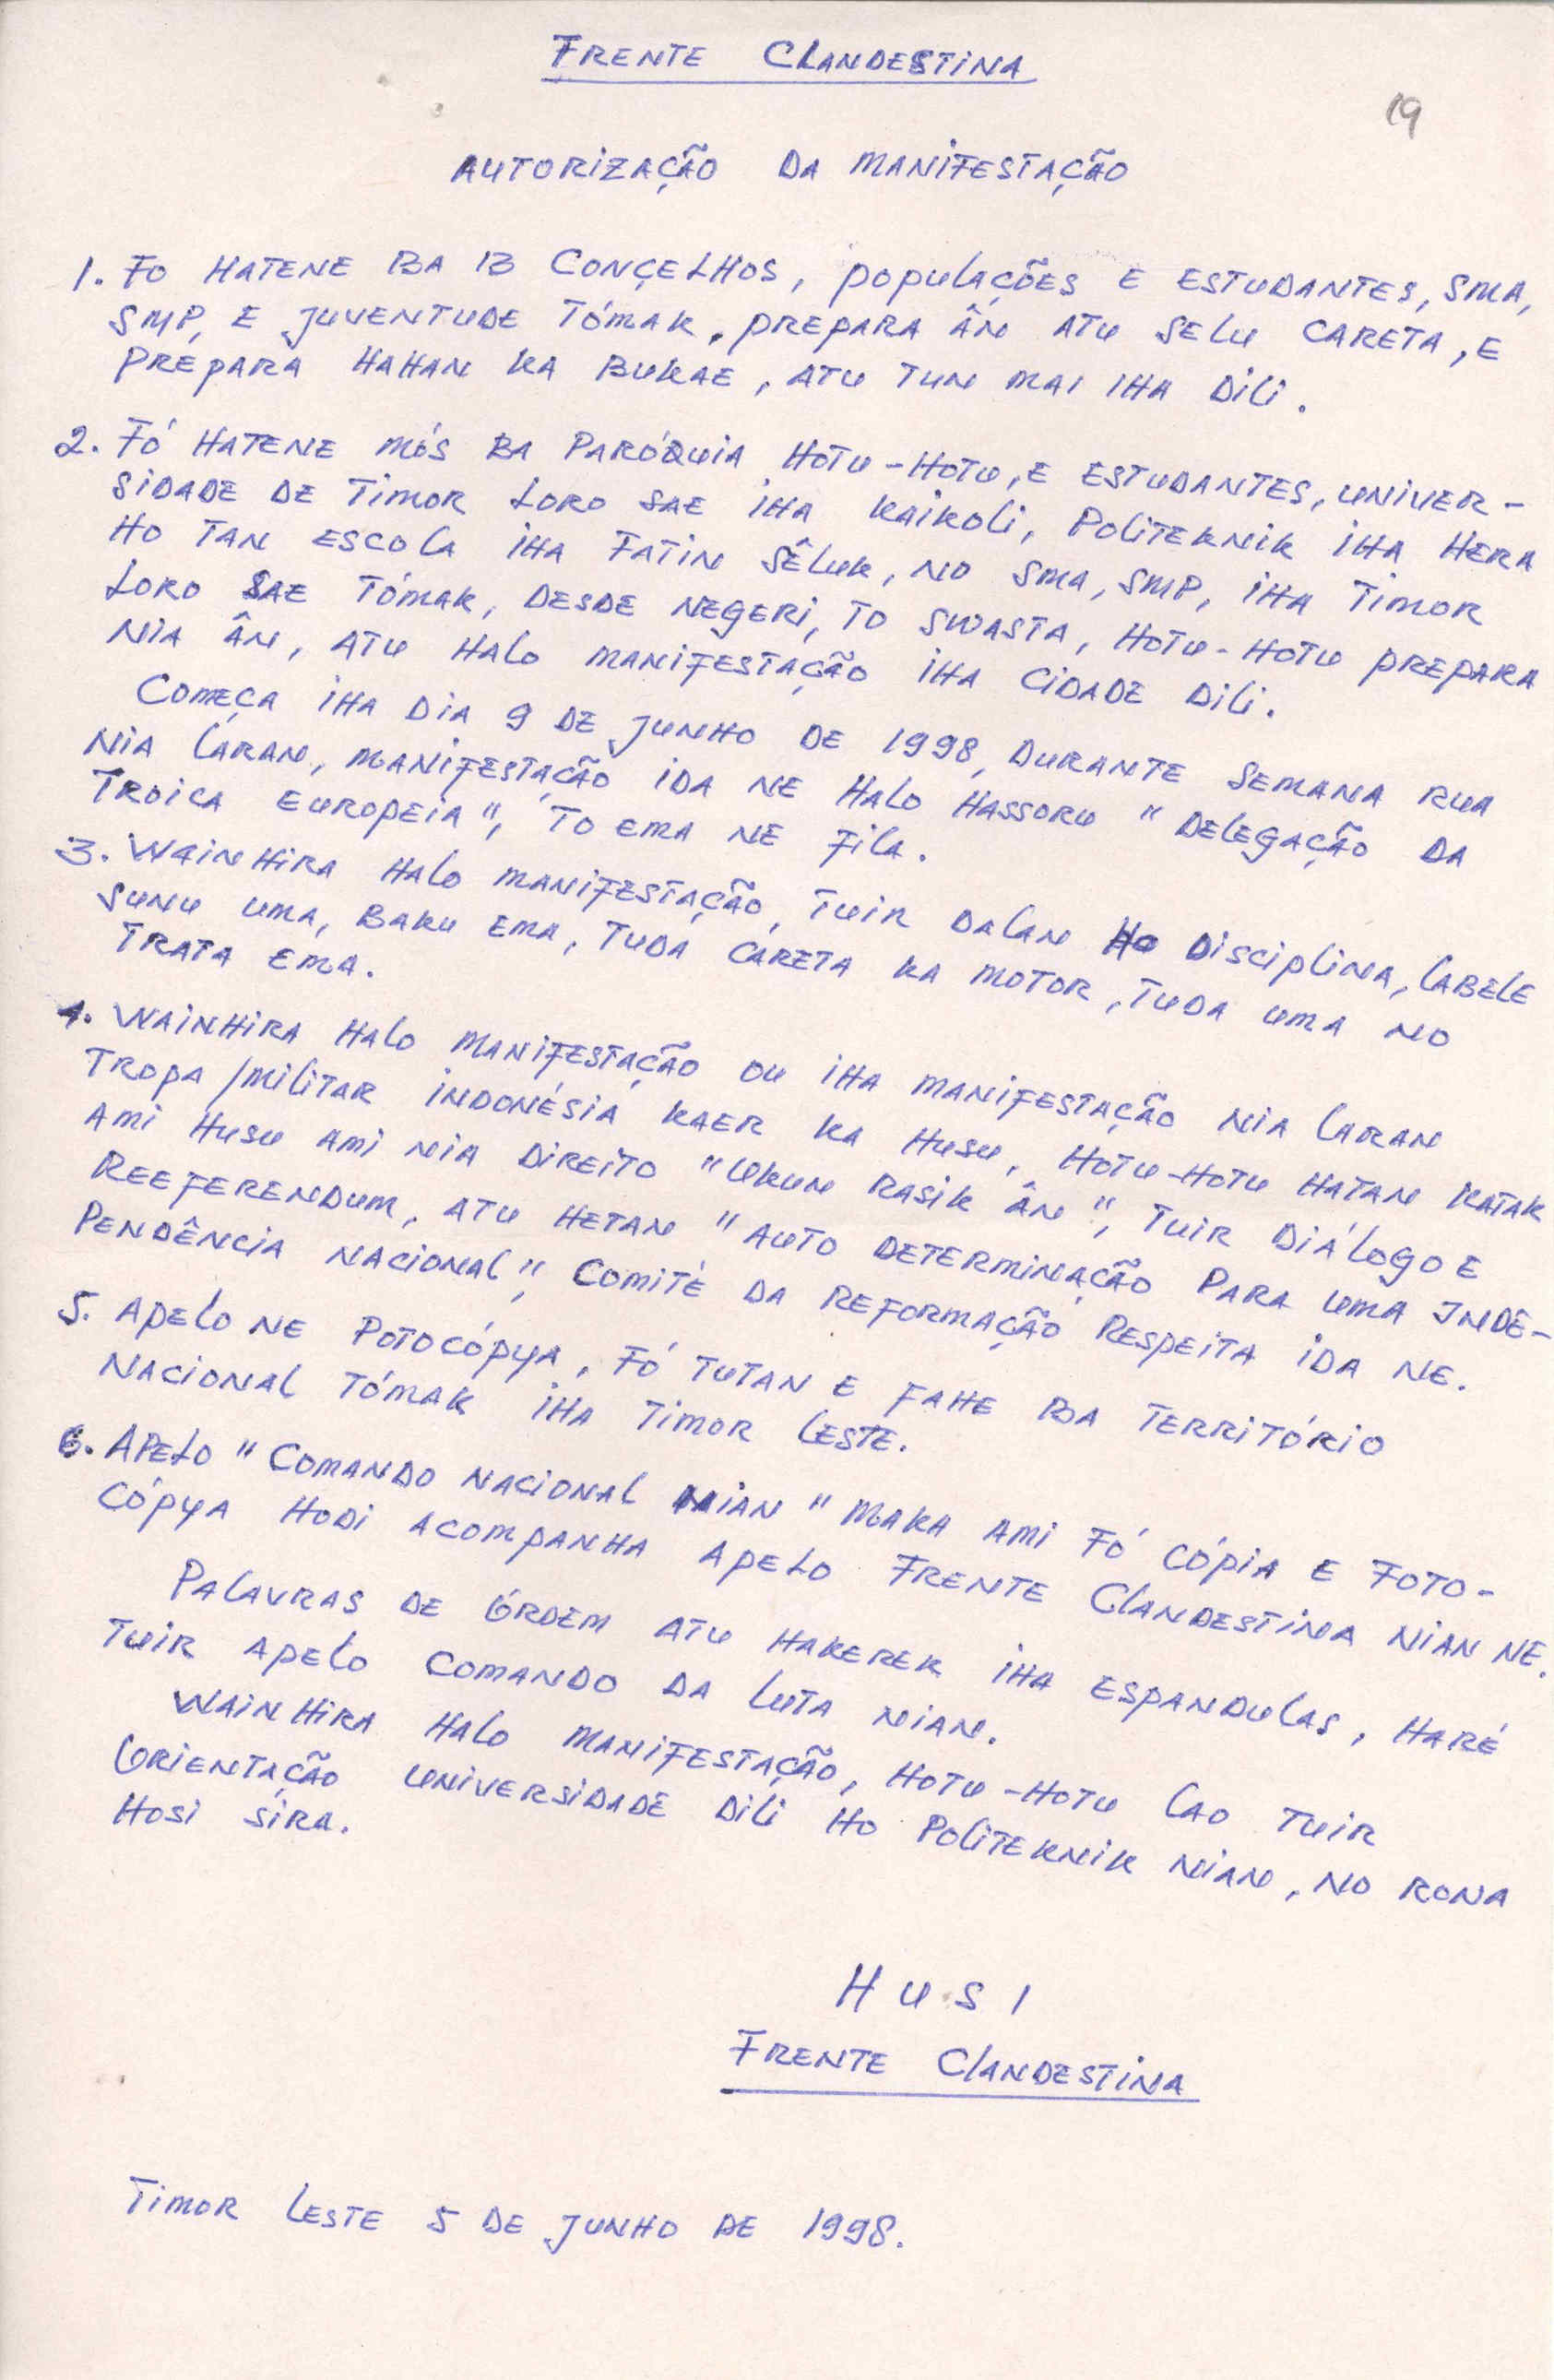 FRENTE CLANDESTINA
19
AUTORIZAÇÃO DA MANIFESTAÇÃO
1. FO HATENE BA 13 CONÇELHOS, POPULAÇÕES E ESTUDANTES, SMA,
SMP, E JUVENTUDE TÓMAK, PREPARA ÂN ATU SELU CARETA, E
PREPARA HAHAN KA BUKAE, ATU TUN MAI IHA DILI.
2. FÓ HATENE MÓS BA PARÓQUIA HOTU-HOTU, E ESTUDANTES, UNIVER-
SIDADE DE TIMOR LORO SAE IHA KAIKOLI, POLITEKNIK IHA HERA
HO TAN ESCOLA IHA FATIN SÊLUK, NO SMA, SMP, IHA TIMOR
LORO SAE TÓMAK, DESDE NEGERI, TO SWASTA, HOTU-HOTU PREPARA
NIA ÂN, ATU HALO MANIFESTAÇÃO IHA CIDADE DILI.
COMEÇA IHA DIA 9 DE JUNHO DE 1998, DURANTE SEMANA RUA
NIA LARAN, MANIFESTAÇÃO IDA NE HALO HASSORU "DELEGAÇÃO DA
TROICA EUROPEIA", TO EMA NE FILA.
3. WAINHIRA HALO MANIFESTAÇÃO, TUIR DALAN HO DISCIPLINA, LABELE
SUNU UMA, BAKU EMA, TUDA CARETA KA MOTOR, TUDA UMA NO
TRATA EMA.
4. WAINHIRA HALO MANIFESTAÇÃO OU IHA MANIFESTAÇÃO NIA LARAN
TROPA/MILITAR INDONÉSIA KAER KA HUSU, HOTU-HOTU HATAN KATAK
AMI HUSU AMI NIA DIREITO "UKUN RASIK ÂN", TUIR DIÁLOGO E
REEFERENDUM, ATU HETAN "AUTO DETERMINAÇÃO PARA UMA INDÊ-
PENDÊNCIA NACIONAL", COMITÉ DA REFORMAÇÃO RESPEITA IDA NE.
5. APELO NE POTOCÓPYA, FÓ TUTAN E FAHE BA TERRITÓRIO
NACIONAL TÓMAK IHA TIMOR LESTE.
6. APELO "COMANDO NACIONAL NIAN" MAKA AMI FÓ CÓPIA E FOTO-
CÓPYA HODI ACOMPANHA APELO FRENTE CLANDESTINA NIAN NE.
PALAVRAS DE ÓRDEM ATU HAKEREK IHA ESPANDULAS, HARÉ
TUIR APELO COMANDO DA LUTA NIAN.
WAINHIRA HALO MANIFESTAÇÃO, HOTU-HOTU LAO TUIR
ORIENTAÇÃO UNIVERSIDADE DILI HO POLITEKNIK NIAN, NO RONA
HOSI SIRA.
HUSI
FRENTE CLANDESTINA
TIMOR LESTE 5 DE JUNHO DE 1998.